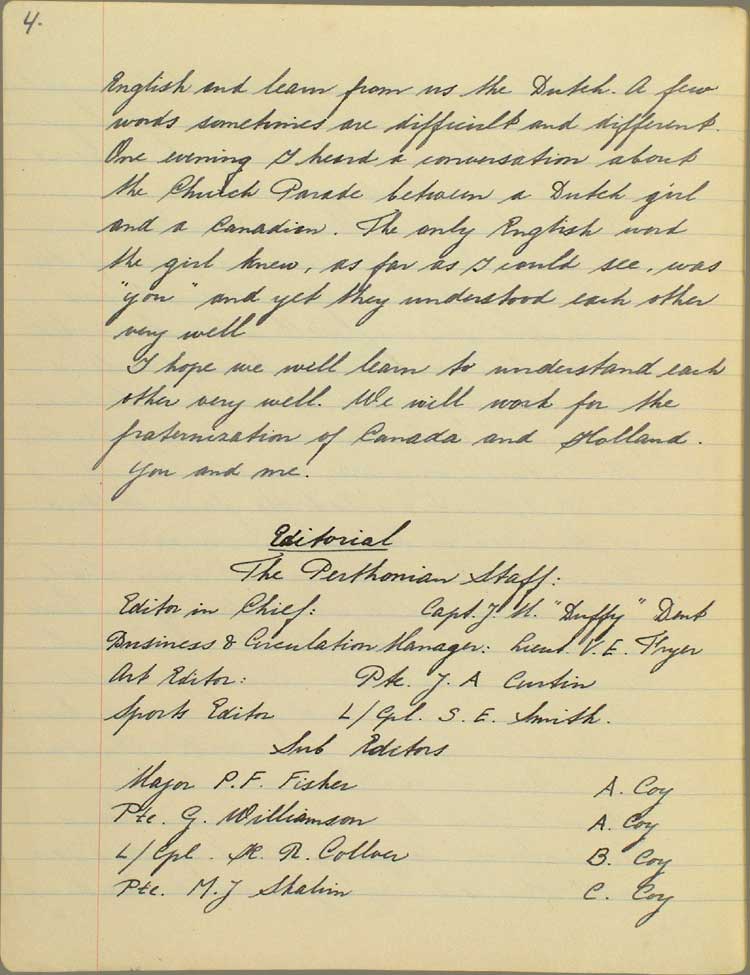 4.
English and learn from us the Dutch. A few
words sometimes are difficult and different.
One evening I heard a conversation about
the Church Parade between a Dutch girl
and a Canadian. The only English word
the girl knew, as far as I could see, was
"you" and yet they understood each other
very well
I hope we will learn to understand each
other very well. We will work for the
fraternization of Canada and Holland.
You and me.
Editorial
The Perthonian Staff:
Editor in Chief: Capt. J. N. "Duffy" Dent
Business & Circulation Manager: Lieut. V. E. Fryer
Art Editor: Pte. J. A Curtin
Sports Editor L/Cpl. S. E. Smith.
Sub Editors
Major P. F. Fisher A. Coy
Pte. G. Williamson A. Coy
L/Cpl. H. R. Collver B. Coy
Pte. M. J C. Coy